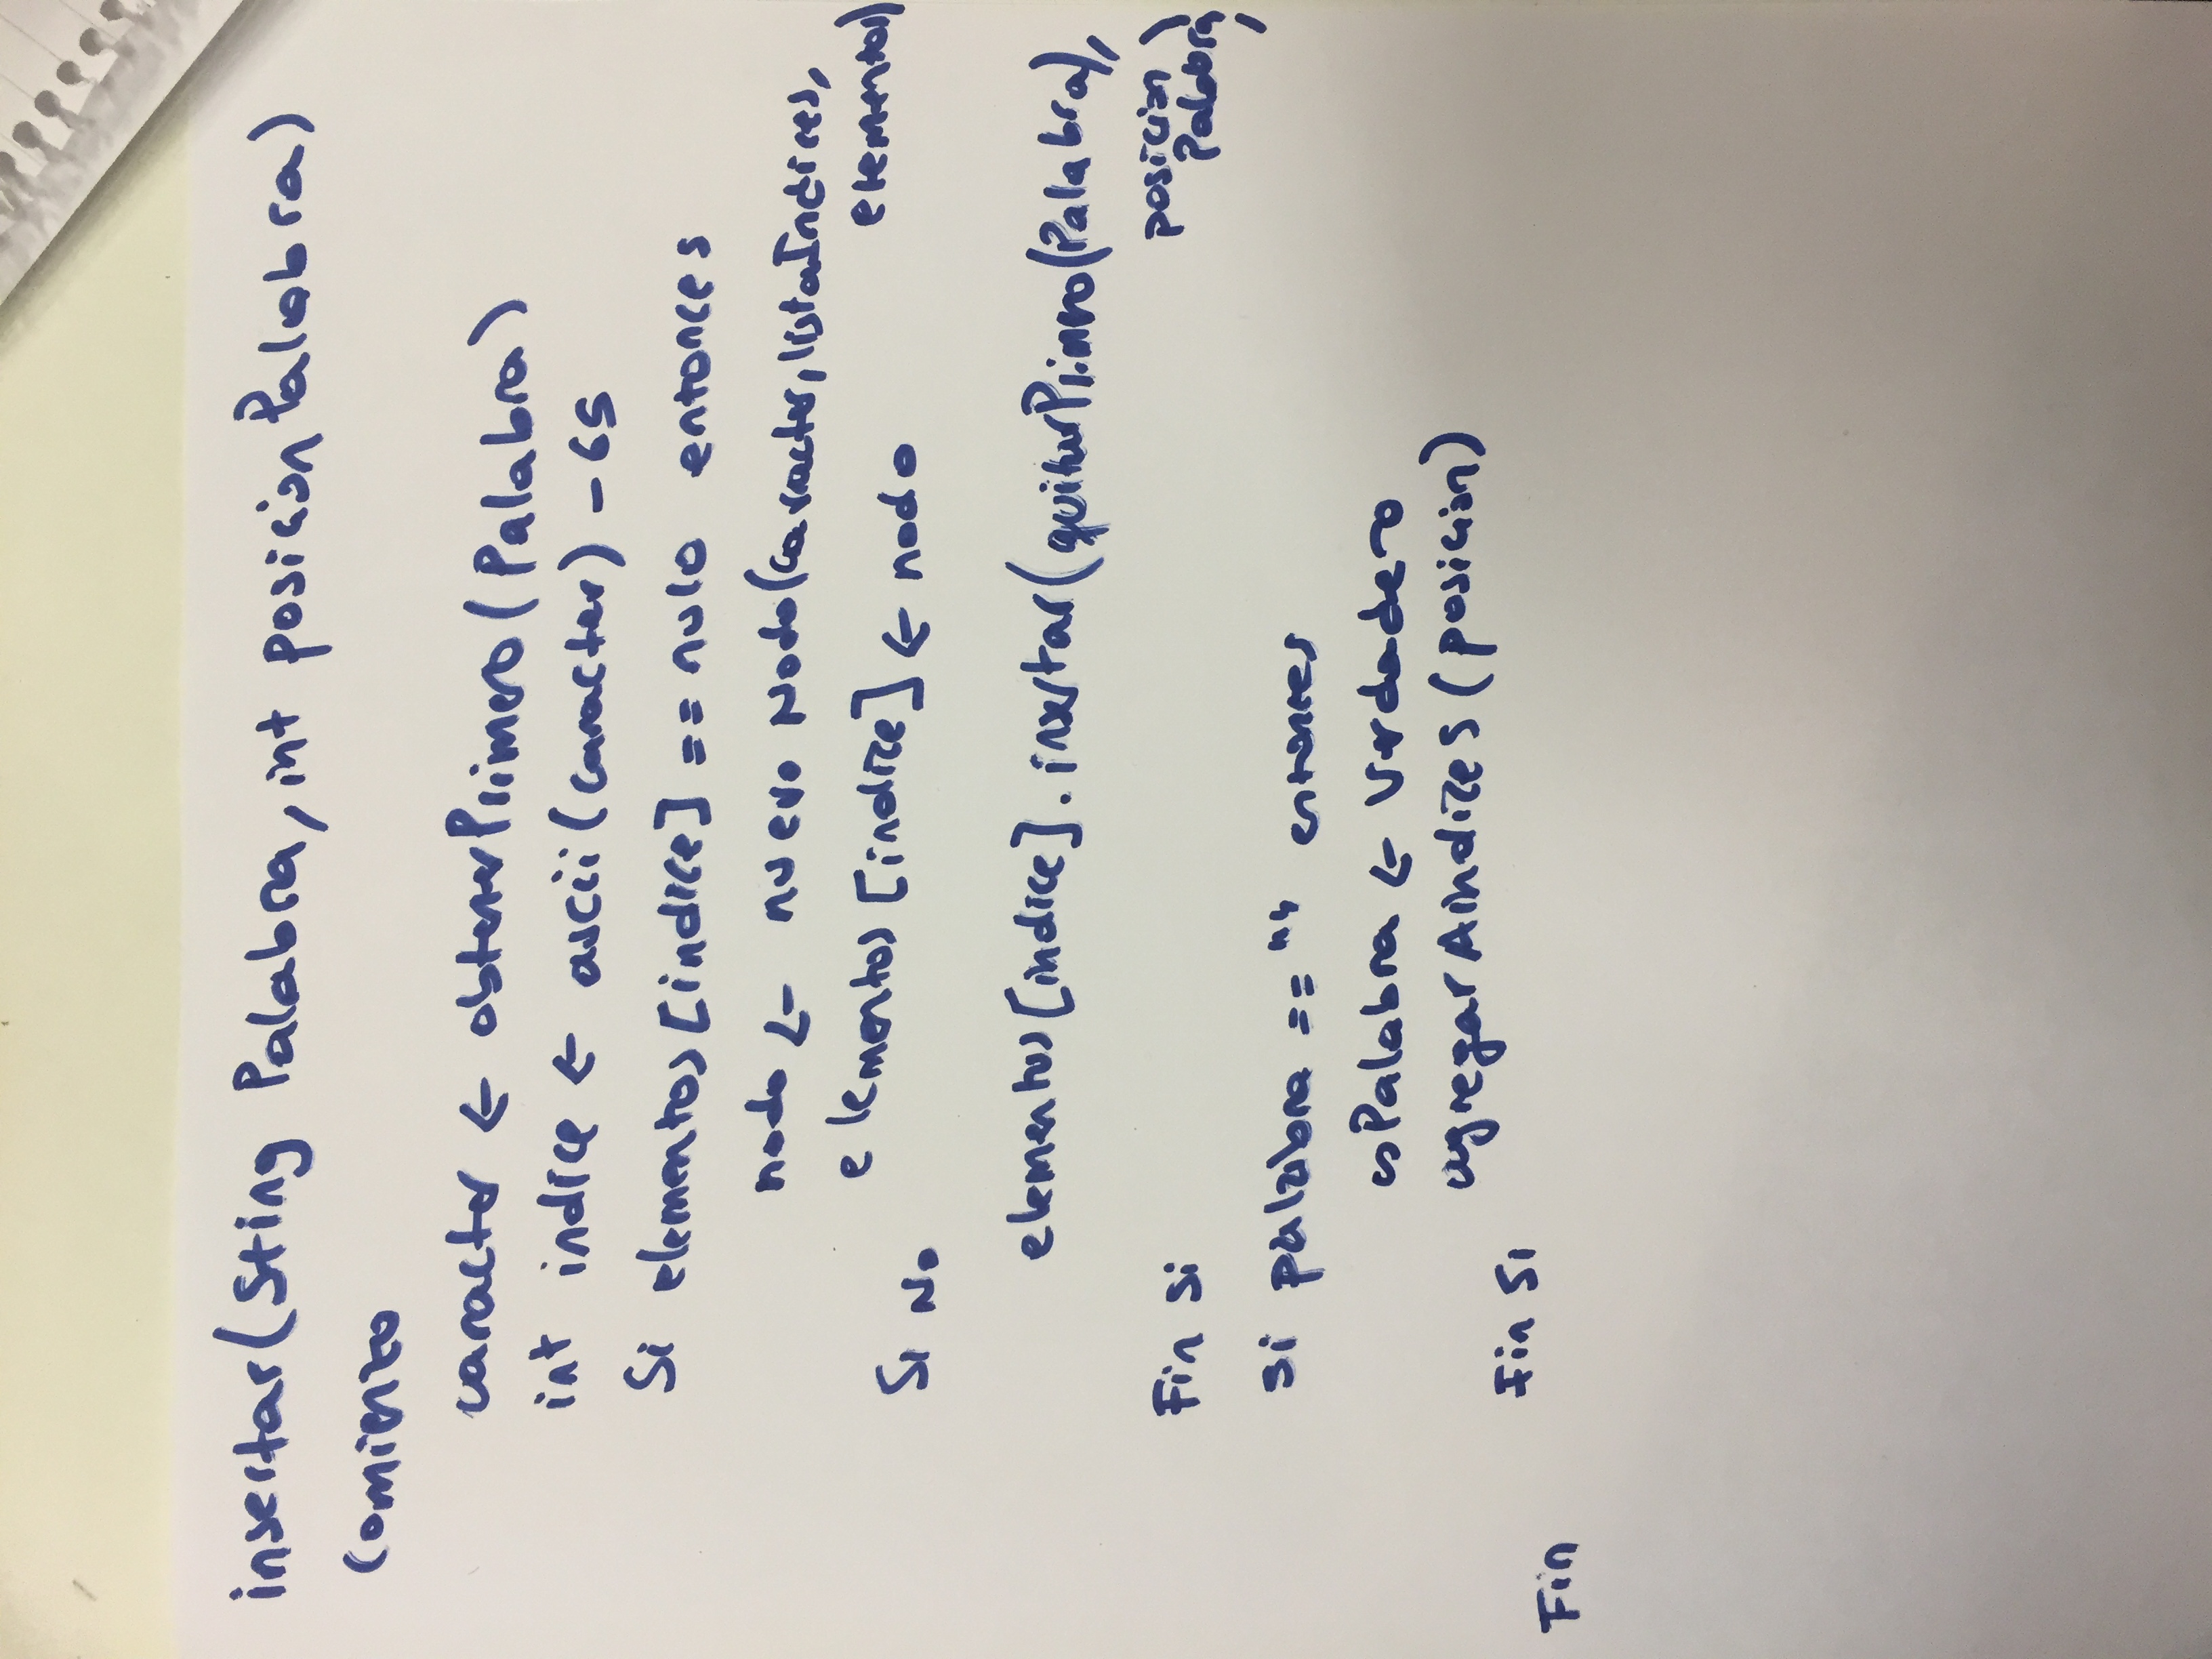 insertar(Sting Palabra, int posicionPalabra)
Comienzo
caracter ← obtenerPrimero(Palabra)
int indice ← ascii(caracter) - 65
Si elementos[indice] == nulo entonces
nodo ← nuevo Nodo(caracter, listaIndices,
elementos)
elementos[indice] ← nodo
Si No
elementos[indice].insertar(quitarPrimero(Palabra),
posicion
Palabra)
,
Fin Si
si palabra == "" entonces
esPalabra ← Verdadero
agregarAindices(posicion)
Fin Si
Fin